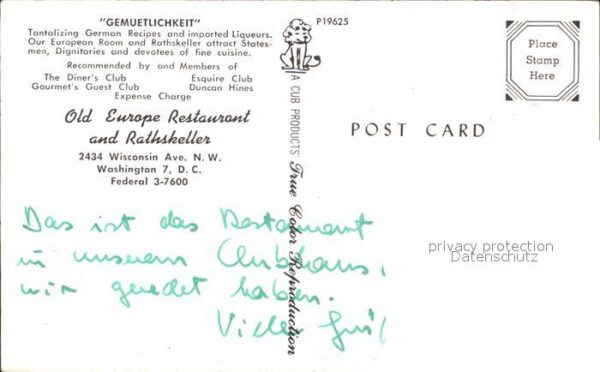 "GEMUETLICHKEIT"
Tantalizing German Recipes and imported Liqueurs.
Our European Room and Rathskeller attract States-
men, Dignitaries and devotees of fine cuisine.
Recommended by and Members of
The Diner's Club Esquire Club
Gourmet's Guest Club Duncan Hines
Expense Charge
Old Europe Restaurant
and Rathskeller
2434 Wisconsin Ave. N. W.
Washington 7, D. C.
Federal 3-7600
P19625
A CUB PRODUCTS True Color Reproduction
POST CARD
Place
Stamp
Here
Das ist das Restaurant
in unserem Clubhaus,
wir geredet haben.
Viele
privacy protection
Datenschutz